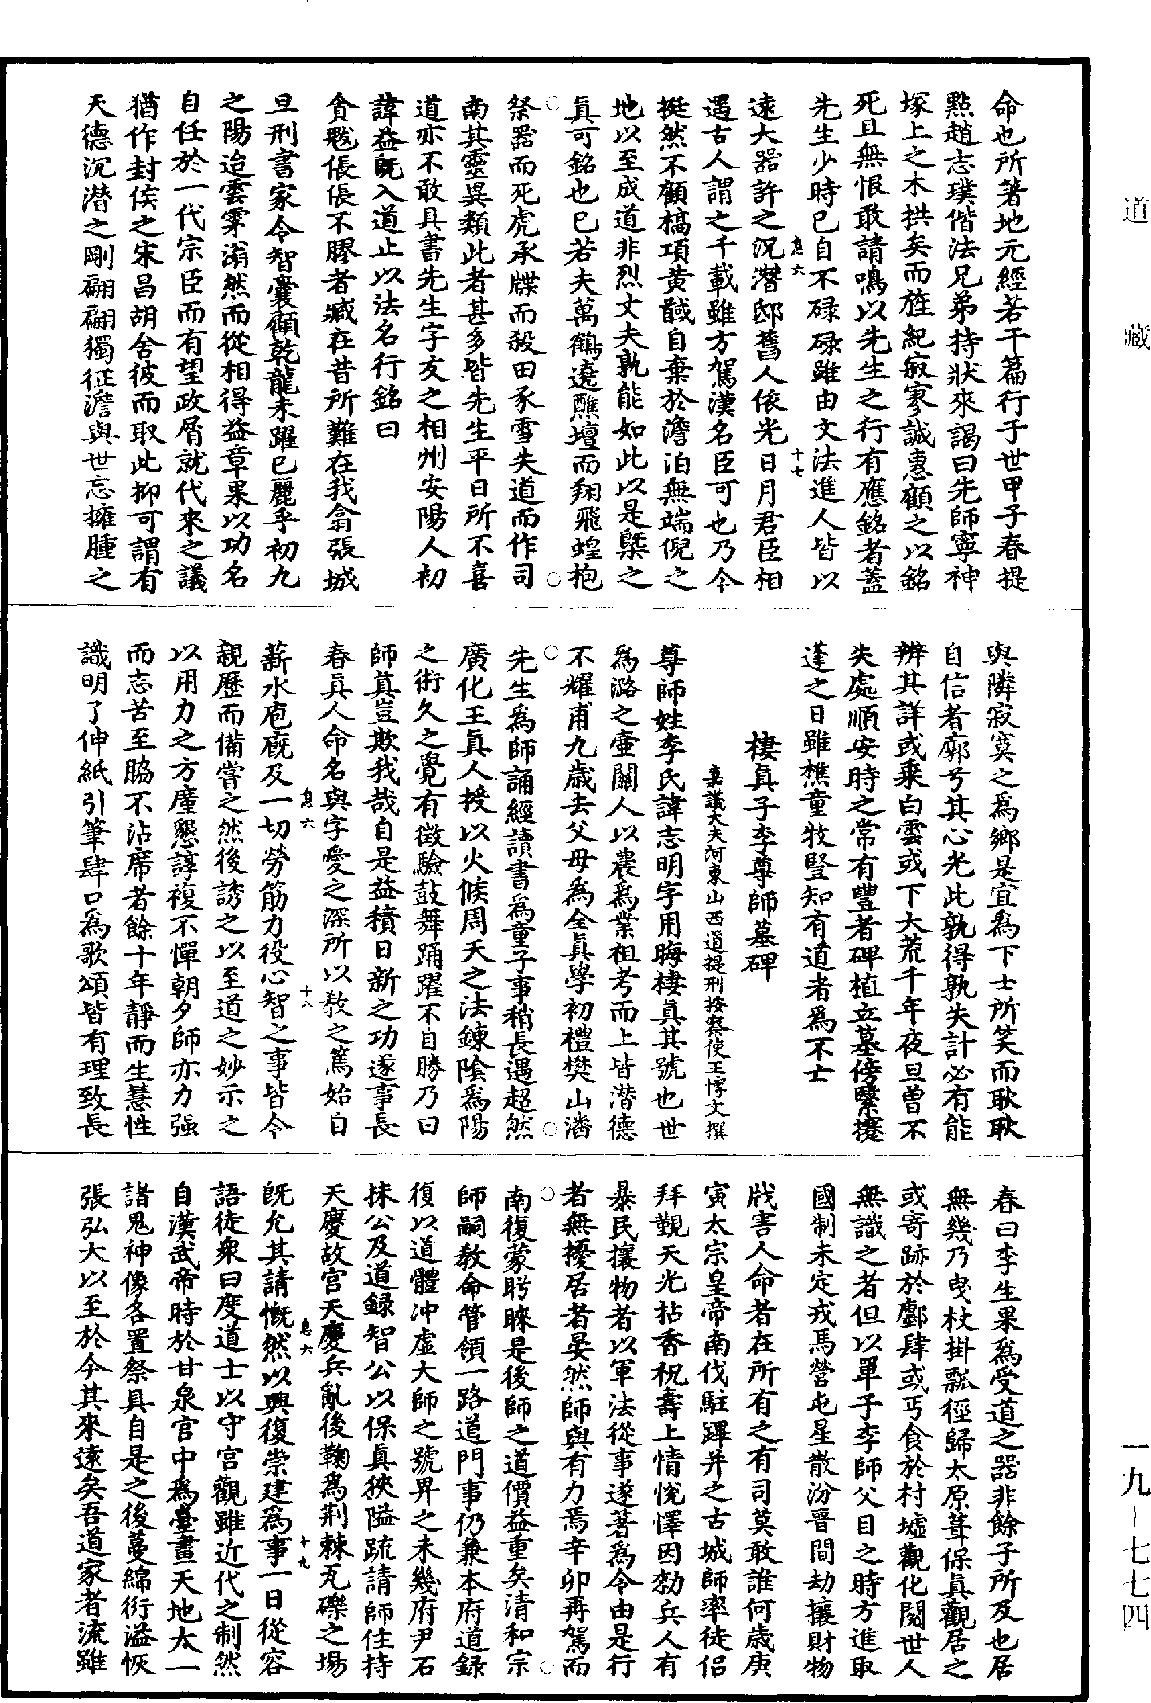 道藏
一九-七七四
命也所著地元經若干篇行于世甲子春提
點趙志璞偕法兄弟持狀來謁曰先師寧神
塚上之木拱矣而旌紀寂寥誠惠顧之以銘
死且無恨敢請鳴以先生之行有應銘者蓋
先生少時已自不碌碌雖由文法進人皆以
遠大器許之沉潛邸舊人依光日月君臣相
息六
十七
遇古人謂之千載雖方駕漢名臣可也乃今
挺然不顧槁項黃馘自棄於澹泊無端倪之
地以至成道非烈丈夫孰能如此以是槩之
真可銘也已若夫萬鶴遶醮壇而翔飛蝗抱
祭器而死虎承牒而殺田豕雪失道而作司
南其靈異類此者甚多皆先生平日所不喜
道亦不敢具書先生字友之相州安陽人初
諱益既入道止以法名行銘曰
貪魁倀倀不膠者臧在昔所難在我翕張城
旦刑書家令智囊顧乾龍未躍已麗乎初九
之陽迨雲霈滃然而從相得益章果以功名
自任於一代宗臣而有望政屑就代來之議
猶作封侯之宋昌胡舍彼而取此抑可謂有
天德沉潛之剛翩翩獨征澹與世忘擁腫之
與隣寂寞之為鄉是宜為下士所笑而耿耿
自信者廓兮其心光此孰得孰失計必有能
辨其詳或乘白雲或下大荒千年夜旦曽不
失處順安時之常有豐者碑植立墓傍繄擾
蓬之日雖樵童牧豎知有道者為不士
棲真子李尊師墓碑
嘉議大夫河東山西道提刑按察使王惲文撰
尊師姓李氏諱志明字用晦棲真其號也世
為潞之壺關人以農為業祖考而上皆潛德
不耀甫九歲去父母為全真學初禮樊山潘
先生為師誦經讀書為童子事稍長遇超然
廣化王真人授以火候周天之法鍊陰為陽
之術久之覺有徵驗鼓舞踊躍不自勝乃曰
師真豈欺我哉自是益積日新之功遂事長
春真人命名與字愛之深所以教之篤始自
息六
十八
薪水庖廐及一切勞筋力役心智之事皆令
親歷而備嘗之然後誘之以至道之妙示之
以用力之方廑懇諄複不憚朝夕師亦力強
而志苦至脇不沾席者餘十年靜而生慧性
識明了伸紙引筆肆口為歌頌皆有理致長
春曰李生果為受道之器非餘子所及也居
無幾乃曳杖掛瓢徑歸太原葺保真觀居之
或寄跡於鄽肆或丐食於村墟觀化閱世人
無識之者但以單子李師父目之時方進取
國制未定戎馬營屯星散汾晉間劫攘財物
戕害人命者在所有之有司莫敢誰何歲庚
寅太宗皇帝南伐駐蹕并之古城師率徒侶
拜覲天光拈香祝壽上情悅懌因勑兵人有
暴民攘物者以軍法從事遂著為令由是行
者無擾居者晏然師與有力焉辛卯再駕而
南復蒙眄睞是後師之道價益重矣清和宗
師嗣教命管領一路道門事仍兼本府道錄
復以道體冲虛大師之號畀之未幾府尹石
抹公及道録智公以保真狹隘疏請師住持
天慶故宮天慶兵亂後鞠為荆棘瓦礫之場
息六
十九
既允其請慨然以興復崇建為事一日從容
語徒衆曰度道士以守宮觀雖近代之制然
自漢武帝時於甘泉宮中為臺畫天地太一
諸鬼神像各置祭具自是之後蔓綿衍溢恢
張弘大以至於今其來遠矣吾道家者流雖